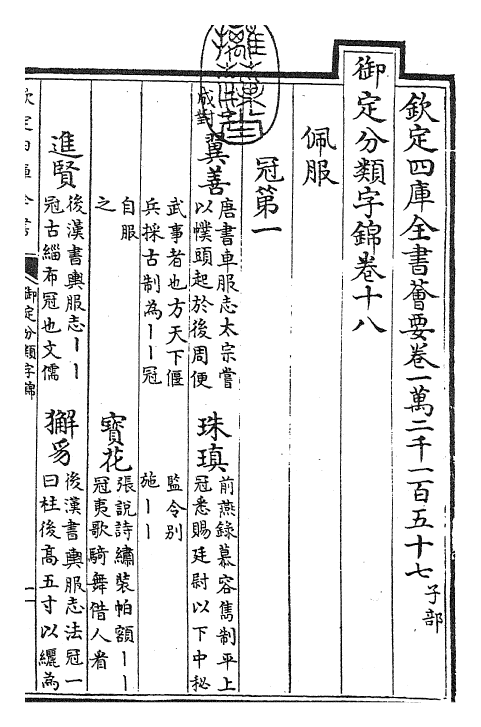 欽定四庫全書薈要卷一萬二千一百五十七 子部
御定分類字錦卷十八
佩服
冠第一
二字
成對
翼善
唐書車服志太宗嘗
以幞頭起於後周便
武事者也方天下偃
兵採古制為丨丨冠
自服
之
珠瑱
前燕錄慕容儁制平上
冠悉賜廷尉以下中秘
監令別
施丨丨
寶花
張說詩繡裝帕額丨丨
冠夷歌騎舞借人看
進賢
後漢書輿服志丨丨
冠古緇布冠也文儒
獬豸
後漢書輿服志法冠一
曰柱後高五寸以纚為
欽定四庫全書
御定分類字錦
一